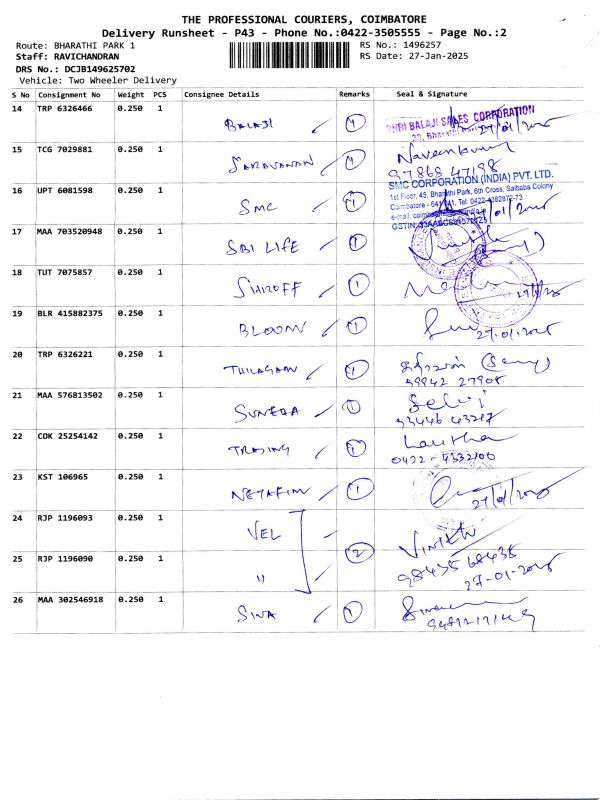 THE PROFESSIONAL COURIERS, COIMBATORE
Delivery Runsheet - P43 - Phone No.:0422-3505555 - Page No.:2
Route: BHARATHI PARK 1
RS No.: 1496257
Staff: RAVICHANDRAN
RS Date: 27-Jan-2025
DRS No.: DCJB149625702
Vehicle: Two Wheeler Delivery
S No Consignment No Weight PCS Consignee Details Remarks Seal & Signature
14 TRP 6326466 0.250 1 BALAJI 1
SHRI BALAJI SALES CORPORATION
15 TCG 7029881 0.250 1 SARAVANAN 1 Naveenkumar
97868 47198
16 UPT 6081598 0.250 1 SMC 1
SMC CORPORATION (INDIA) PVT. LTD.
1st Floor, 45, Bharathi Park, 6th Cross, Saibaba Colony
17 MAA 703520948 0.250 1 SBI LIFE 1
18 TUT 7075857 0.250 1 SHROFF 1
19 BLR 415882375 0.250 1 BLOOM 1
27-01-2025
20 TRP 6326221 0.250 1 THILAGAM 1
99942 27905
21 MAA 576813502 0.250 1 SUNERA 1 Selvi
93446 43217
22 COK 25254142 0.250 1 TRADING 1 Lalitha
0422-4332100
23 KST 106965 0.250 1 NETAFIM 1
27/01/2025
24 RJP 1196093 0.250 1 VEL
2
25 RJP 1196090 0.250 1 "
98435 68435
27-01-2025
26 MAA 302546918 0.250 1 SIVA 1